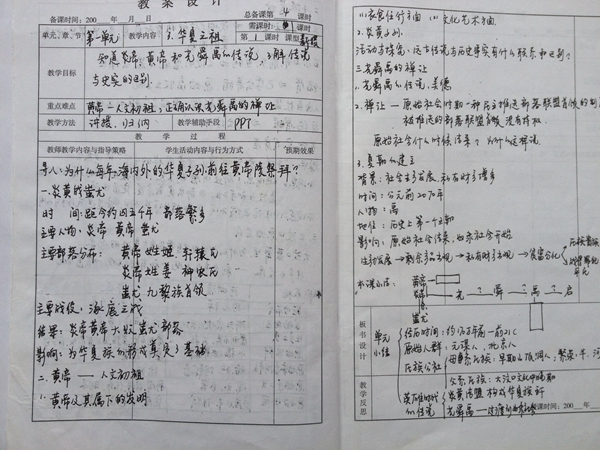 教案设计
总备课第4课时
备课时间：200 年 月 日
需课时
单元、章、节 第一单元 教学内容 3.华夏之祖 第1课时 课型 新授
教学目标 知道炎帝、黄帝和尧舜禹的传说，了解传说
与史实的区别.
重点难点 黄帝——人文初祖；正确认识尧舜禹的禅让
教学方法 讲授、归纳 教学辅助手段 PPT
教学过程
教师教学内容与指导策略 学生活动内容与行为方式 预期效果
导入：为什么每年海内外的华夏子孙前往黄帝陵祭拜？
一.炎黄战蚩尤
时间：距今约四五千年 部落繁多
主要人物：炎帝 黄帝 蚩尤
主要部落分布：黄帝姓姬，轩辕氏
炎帝姓姜 神农氏
蚩尤 九黎族首领
主要战役：涿鹿之战
结果：炎帝黄帝大败蚩尤部落
影响：为华夏族的形成奠定了基础
二.黄帝——人文初祖
1.黄帝及其属下的发明
(1)衣食住行方面 (2)文化艺术方面
2.炎黄子孙.
活动与探究：远古传说与历史事实有什么联系和区别？
三.尧舜禹的禅让
1.尧舜禹的传说，美德
2.禅让—原始社会时期一种民主推选部落联盟首领的制
被推选的部落联盟首领没有特权
原始社会什么时候结束？为什么这样说.
3.夏朝的建立
背景：社会生产发展，私有财产增多
时间：公元前2070年
人物：禹
地位：历史上第一个王朝
影响：原始社会结束，奴隶社会开始
生产发展→剩余产品出现→私有财产出现→贫富分化
板书设计
黄帝
炎帝
尧 舜 禹 启
蚩尤
单元小结
经历时间：约170万年前—前21C
原始人群：元谋人、北京人
氏族公社
母系氏族：
父系氏族：大汶口文化中晚期
炎黄结盟 构成华夏族
尧舜禹
教学反思
备课时间：200 年